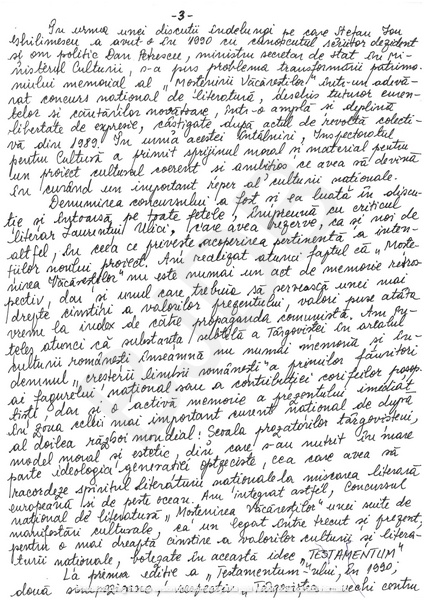 -3-
În urma unei discuții îndelungi pe care Ștefan Ion
Ghilimescu a avut-o în 1990 cu cunoscutul scriitor dezident
și om politic Dan Petrescu, ministru secretar de stat în Mi-
nisterul Culturii, s-a pus problema transformării patrimo-
niului memorial al „Moștenirii Văcăreștilor" într-un adevă-
rat concurs național de literatură, deschis tuturor curen-
telor și căutărilor novatoare, într-o amplă și deplină
libertate de expresie, câștigate după actul de revoltă colecti-
vă din 1989. În urma acestei întâlniri, Inspectoratul
pentru Cultură a primit sprijinul moral și material pentru
un proiect cultural coerent și ambițios ce avea să devină
în curând un important reper al culturii naționale.
Denumirea concursului a fost și ea luată în discu-
ție și întoarsă pe toate fețele, împreună cu criticul
literar Laurențiu Ulici, care avea rezerve, ca și noi de
altfel, în ceea ce privește acoperirea pertinentă a inten-
țiilor noului proiect. Am realizat atunci faptul că „Moște-
nirea Văcăreștilor" nu este numai un act de memorie retros-
pectiv, dar și unul care trebuia să servească unei mai
drepte cinstiri a valorilor prezentului, valori puse atâta
vreme la index de către propaganda comunistă. Am în-
țeles atunci că substanța subtilă a Târgoviștei în arealul
culturii românești înseamnă nu numai memorie și în-
demnul „creșterii limbii românești" a primilor făuritori
ai fagurelui național sau a contribuției corifeilor pașop-
tiști, dar și o activă memorie a prezentului imediat
în zona celui mai important curent național de după
al doilea război mondial: Școala prozatorilor târgovișteni,
model moral și estetic, din care s-au nutrit în mare
parte ideologia generației optzeciste, cea care avea să
racordeze spiritul literaturii naționale la mișcarea literară
europeană și de peste ocean. Am integrat astfel, Concursul
național de literatură „Moștenirea Văcăreștilor" unei suite de
manifestări culturale, ca un legat între trecut și prezent,
pentru o mai dreaptă cinstire a valorilor culturii și litera-
turii naționale, botezate în această idee „TESTAMENTUM"
La prima ediție a „Testamentum"-ului, în 1990,
două respectiv „Târgoviștea vechi contu